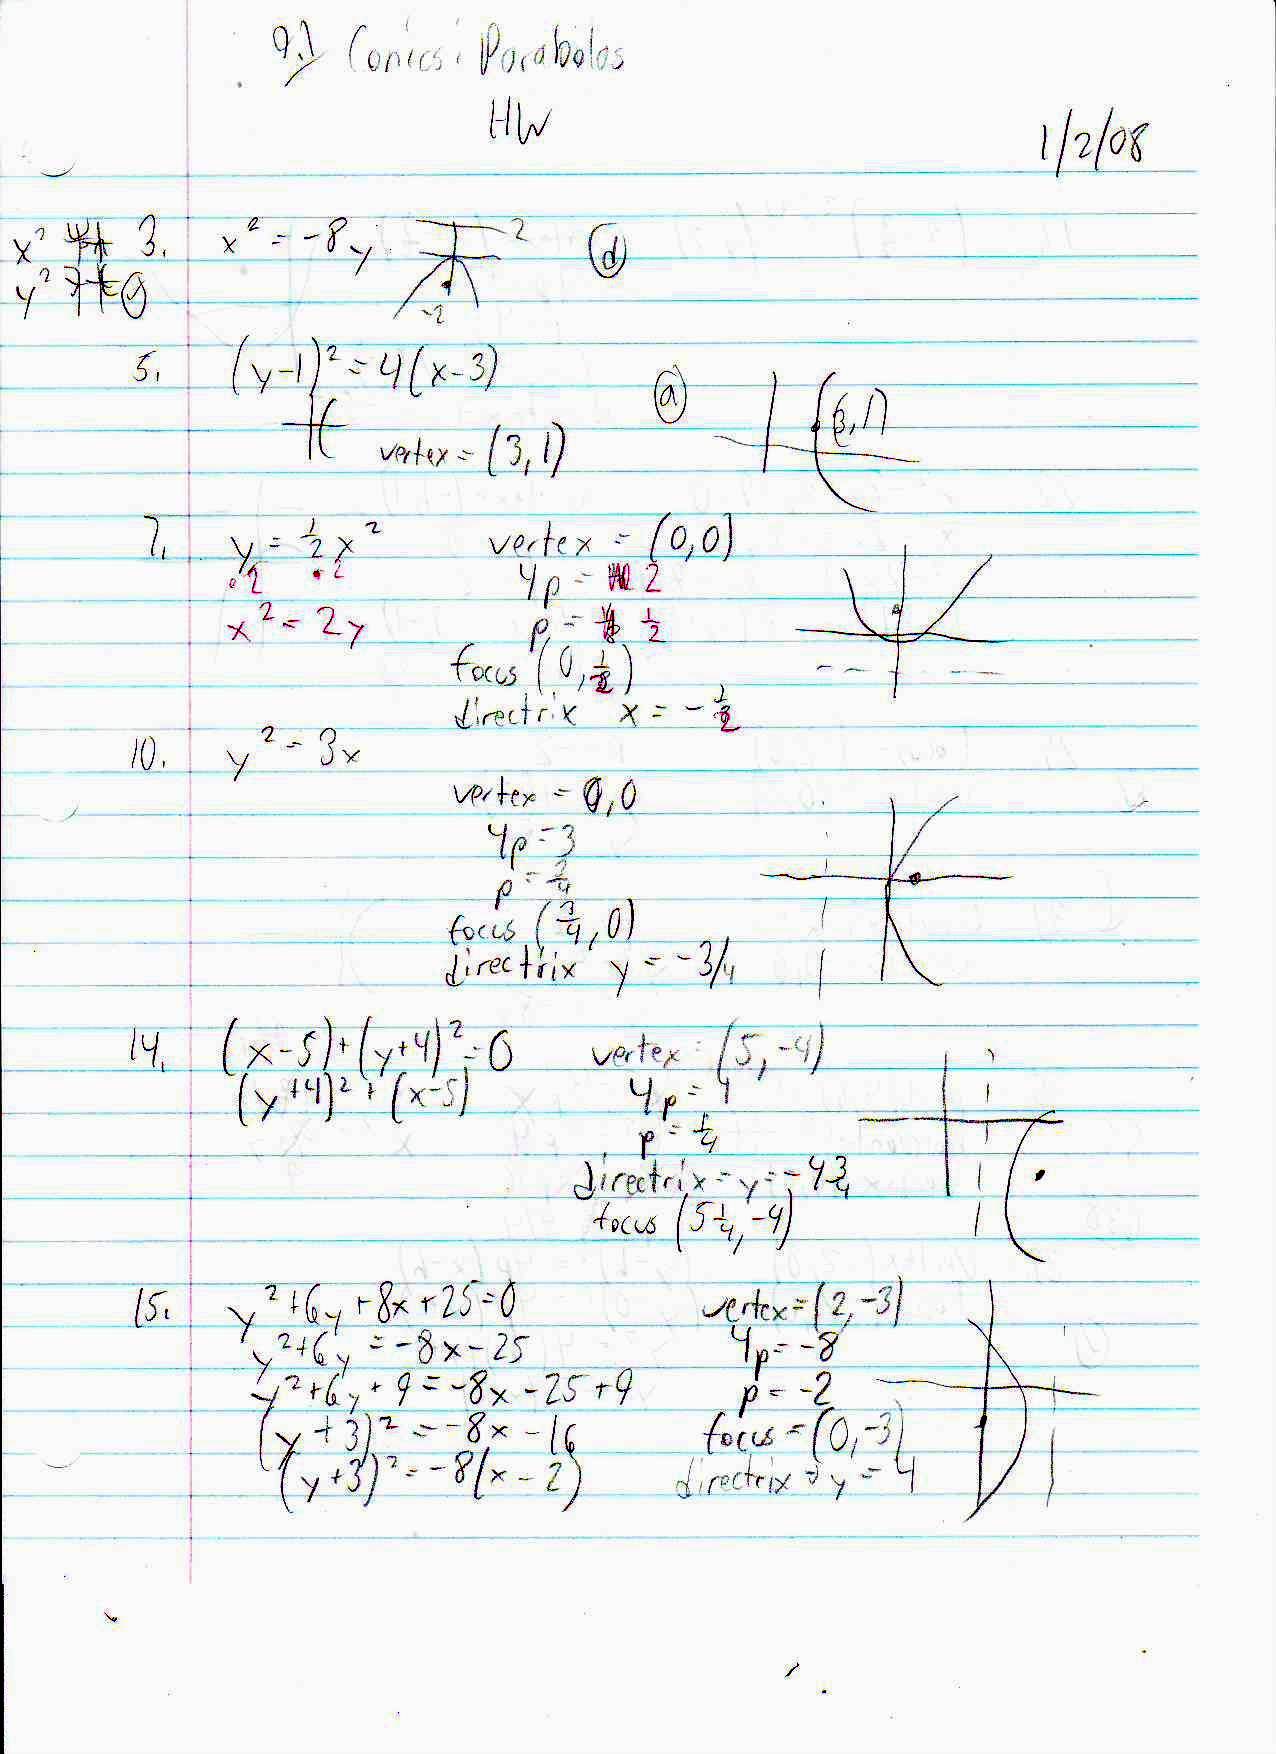 9.1 Conics: Parabolas
HW
1/2/08
x²
y²
3. x² = -8y 2 -2 (d)
5. (y-1)² = 4(x-3) (a) (3,1)
vertex = (3,1)
7. y = 1/2 x² vertex = (0,0)
·2 ·2 4p = 2
x² = 2y p = 1/2
focus (0, 1/2)
directrix x = -1/2
10. y² = 3x
vertex = 0,0
4p = 3
p = 3/4
focus (3/4, 0)
directrix y = -3/4
14. (x-5)+(y+4)² = 0 vertex = (5,-4)
(y+4)² + (x-5) 4p = 1
p = 1/4
directrix = y = -4 3/4
focus (5 1/4, -4)
15. y²+6y+8x+25=0 vertex = (2,-3)
y²+6y = -8x-25 4p = -8
y²+6y+9 = -8x-25+9 p = -2
(y+3)² = -8x-16 focus = (0,-3)
(y+3)² = -8(x-2) directrix = y = 4